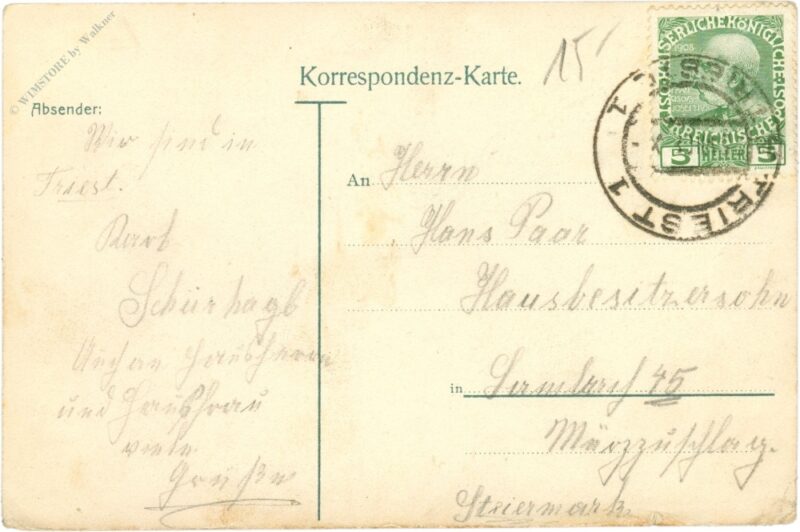 © WIMSTORE by Walkner
15
Korrespondenz-Karte.
KAISERLICHE KÖNIGLICHE ÖSTERREICHISCHE POST
1908
5 HELLER 5
TRIEST 1
Absender:
Wir sind in
Triest.
Karl
Auch an Hausherrn
und Hausfrau
viele
Grüße
An Herrn
Hans Paar
Hausbesitzersohn
in 45
Mürzzuschlag.
Steiermark